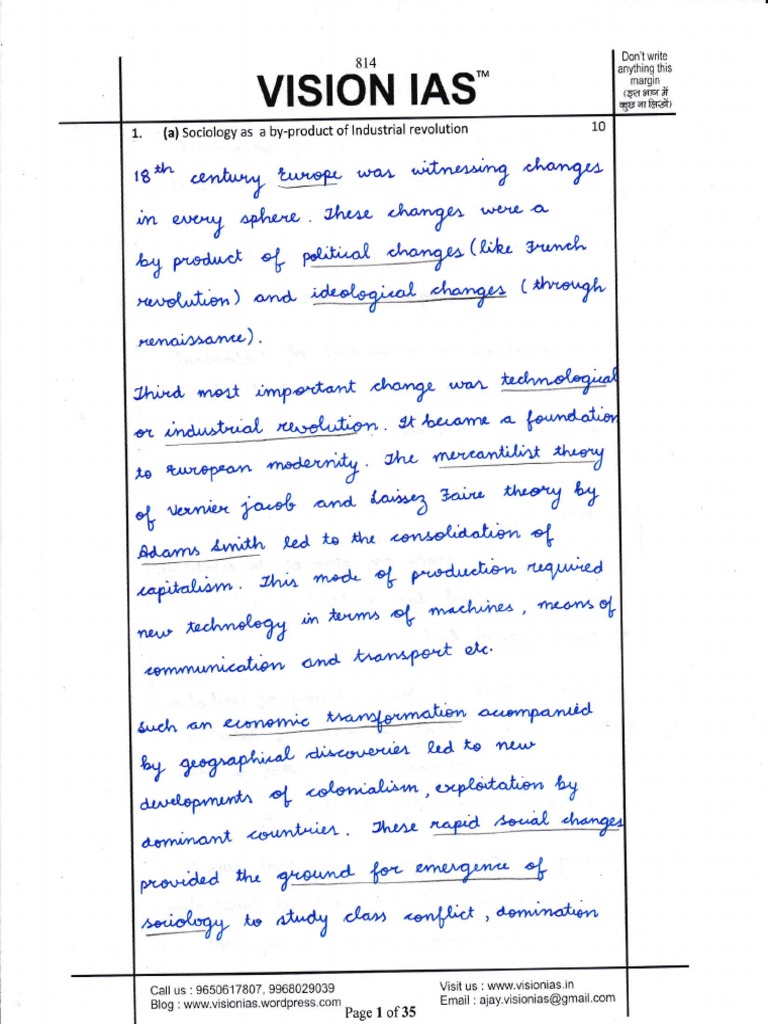 814
VISION IAS™
Don't write
anything this
margin
(इस भाग में
कुछ ना लिखें)
1. (a) Sociology as a by-product of Industrial revolution 10
18th century Europe was witnessing changes
in every sphere. These changes were a
by product of political changes (like French
revolution) and ideological changes (through
renaissance).
Third most important change was technological
or industrial revolution. It became a foundation
to European modernity. The mercantilist theory
of Vernier Jacob and Laissez Faire theory by
Adams Smith led to the consolidation of
capitalism. This mode of production required
new technology in terms of machines, means of
communication and transport etc.
Such an economic transformation accompanied
by geographical discoveries led to new
developments of colonialism, exploitation by
dominant countries. These rapid social changes
provided the ground for emergence of
sociology to study class conflict, domination
Call us : 9650617807, 9968029039
Blog : www.visionias.wordpress.com
Page 1 of 35
Visit us : www.visionias.in
Email : ajay.visionias@gmail.com